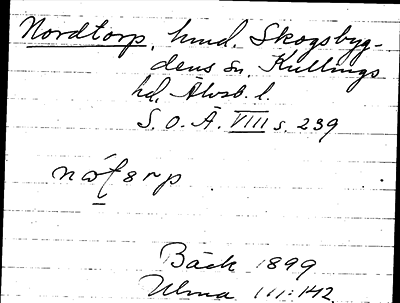 Nordtorp, hmd. Skogsbyg-
dens sn. Kullings
hd. Älvsb. l.
S. O. Ä. VIII s. 239
Bäck 1899
Ulma 111:142.